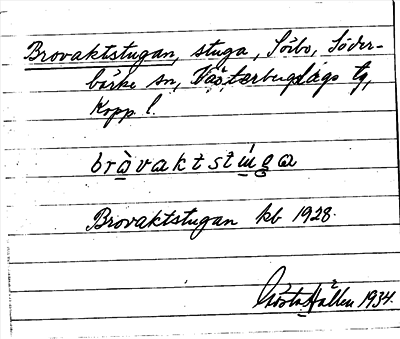 Brovaktstugan, stuga, Sörbo, Söder-
bärke sn, Västerbergslags tg,
Kopp l.
bràvaktstúga
Brovaktstugan kb 1928.
Gösta Hallén 1934.